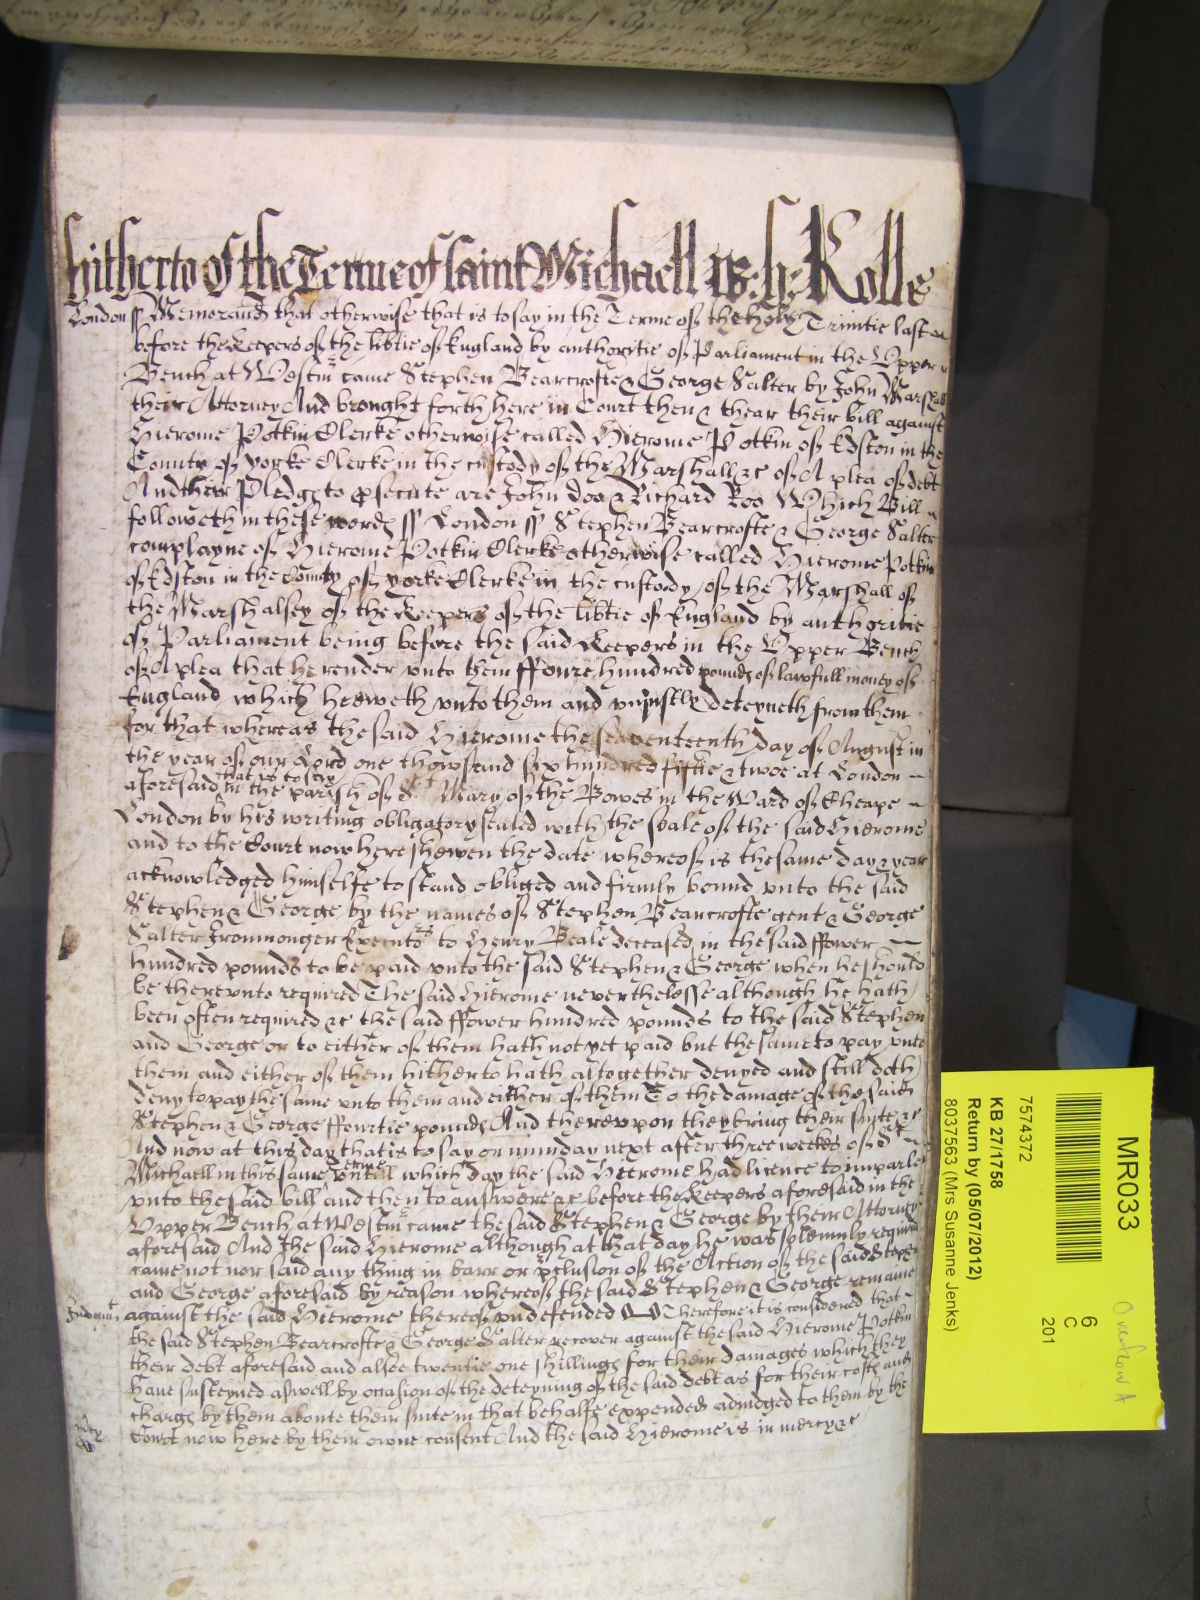 hitherto of the Terme of Saint Michaell w:h: Rolle
London ss Memorand that otherwise that is to say in the Terme of the holy Trinitie last
before the Keepers of the libtie of England by authoritie of Parliament in the Upper
Bench at Westm came Stephen Bearcrofte & George Salter by John Marshall
their Attorney And brought forth here in Court then & thear their bill against
Hierome Potkin Clerke otherwise called Hierome Potkin of Edston in the
County of yorke Clerke in the custody of the Marshall &c of A plea of debt
And their Pledges to psecute are John Doo & Richard Roo Which Bill
followeth in these words ss London ss Stephen Bearcrofte & George Salter
complayne of Hierome Potkin Clerke otherwise called Hierome Potkin
of Edston in the County of yorke Clerke in the custody of the Marshall of
the Marshalsey of the Keepers of the libtie of England by authoritie
of Parliament being before the said Keepers in the Upper Bench
of A plea that he render unto them ffoure hundred pounds of lawfull money of
England which he oweth unto them and uniustly deteyneth from them
for that whereas the said Hierome the seaventeenth day of August in
the year of our Lord one thowsand six hundred fiftie & twoe at London
aforesaid that is to say in the parish of St Mary of the Bowes in the Ward of Cheape
London by his writing obligatory sealed with the seale of the said Hierome
and to the Court now here shewen the date whereof is the same day & year
acknowledged himselfe to stand obliged and firmly bound unto the said
Stephen & George by the names of Stephen Bearcrofte gent & George
Salter Ironmonger Executors to Henry Beale deceased in the said ffower
hundred pounds to be paid unto the said Stephen & George when he should
be thereunto required The said Hierome neverthelesse although he hath
been often required &c the said ffower hundred pounds to the said Stephen
and George or to either of them hath not yet paid but the same to pay unto
them and either of them hitherto hath altogether denyed and still doth
deny to pay the same unto them and either of them To the damage of the said
Stephen & George ffourtie pounds And thereupon they bring their suite &c
And now at this day that is to say on munday next after three weekes of St
Michaell in this same Terme untill which day the said Hierome had licence to imparle
unto the said bill and then to answere &c before the Keepers aforesaid in the
Upper Bench at Westm came the said Stephen & George by their Attorney
aforesaid And the said Hierome although at that day he was solemnly required
came not nor said any thing in barr or pclusion of the Action of the said Stephen
and George aforesaid by reason whereof the said Stephen & George remaine
Judgmt against the said Hierome thereof undefended Therefore it is considered that
the said Stephen Bearcrofte & George Salter recover against the said Hierome Potkin
their debt aforesaid and alsoe twentie one shillings for their damages which they
have susteyned aswell by occasion of the deteyning of the said debt as for their costs and
charges by them aboute their suite in that behalfe expended adiudged to them by the
mcy Court now here by their owne consent And the said Hierome is in mercy &c
MR033
6
C
201
7574372
KB 27/1758
Return by (05/07/2012)
8037563 (Mrs Susanne Jenks)
Overflow A